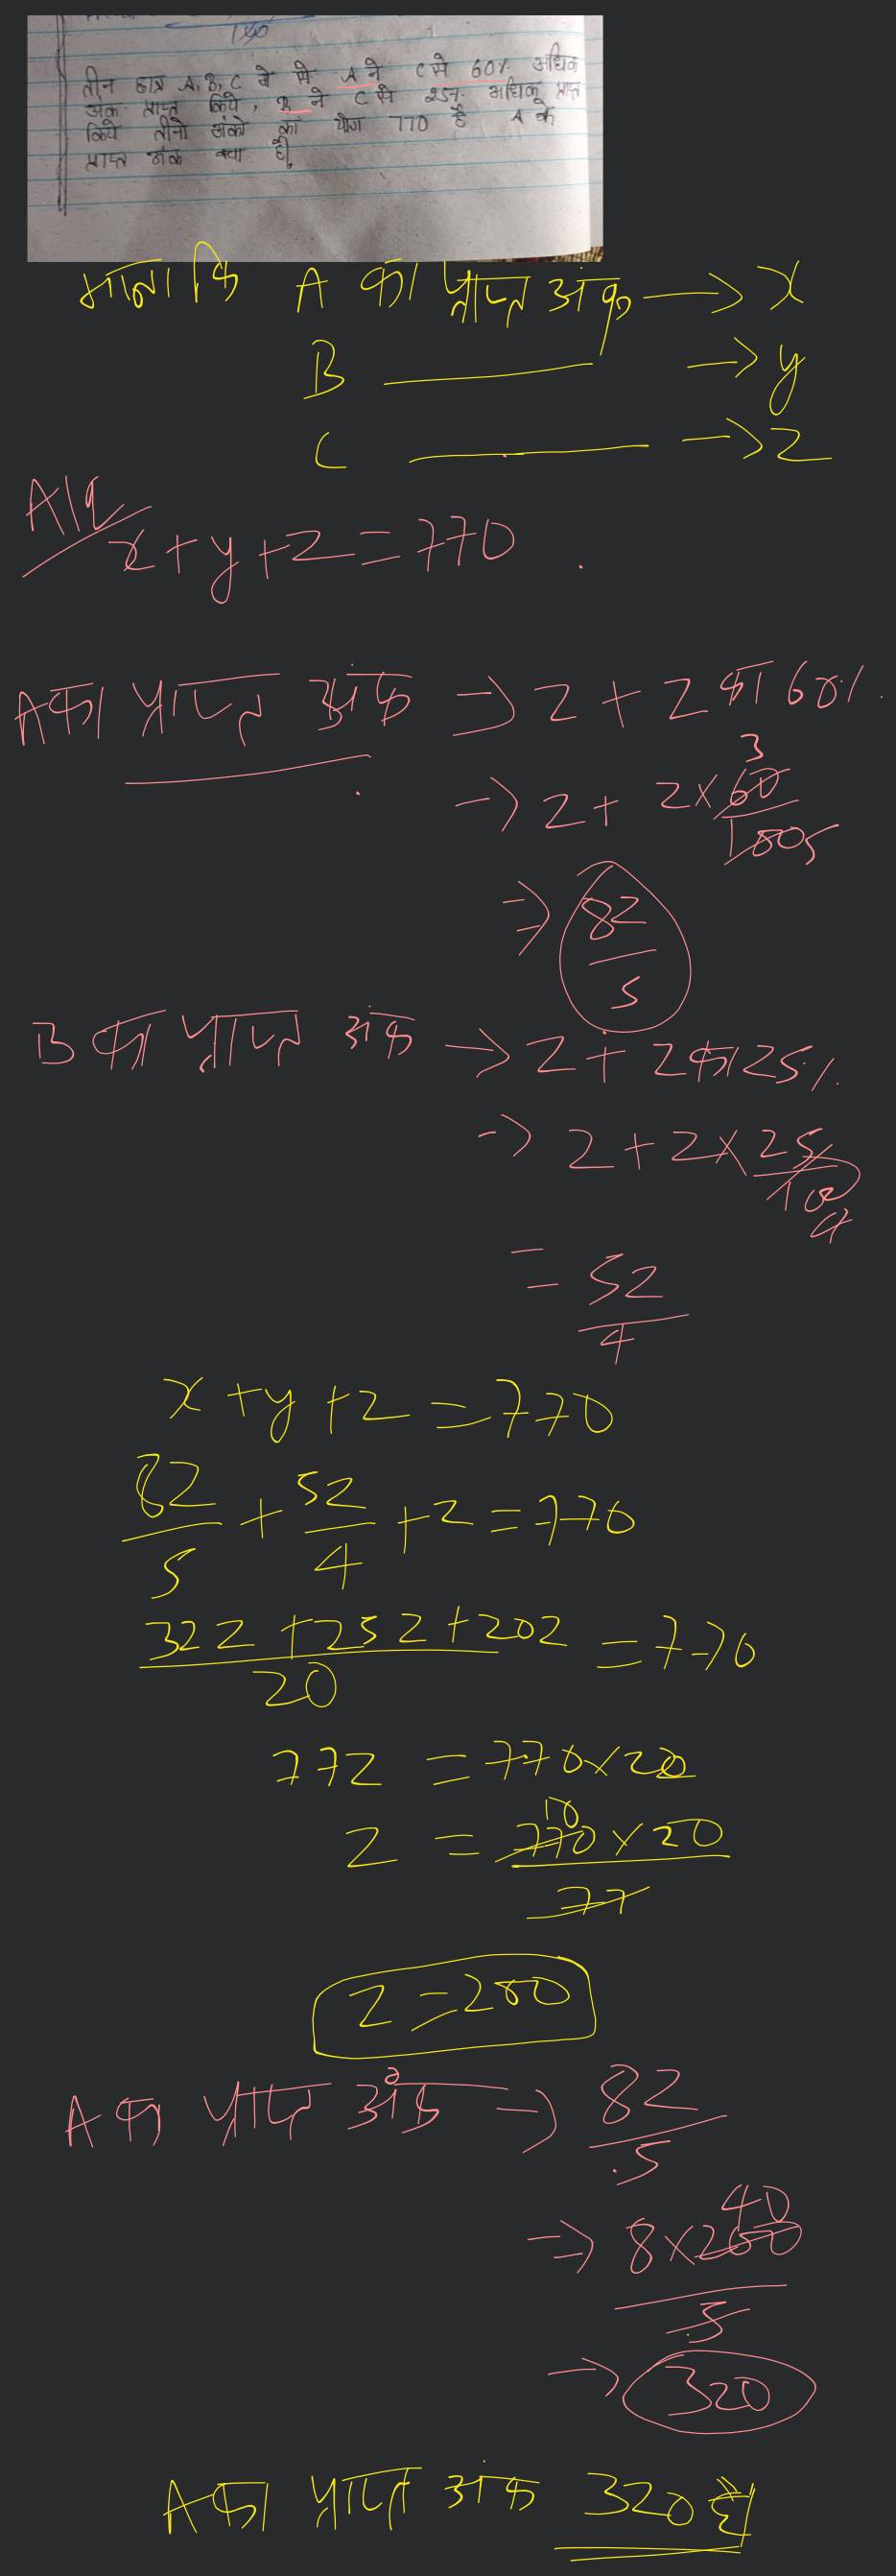 तीन छात्र A, B, C में से A ने C से 60% अधिक
अंक प्राप्त किये, B ने C से 25% अधिक प्राप्त
किये तीनो अंको का योग 770 है A के
प्राप्त अंक क्या है।
माना कि A का प्राप्त अंक → x
B → y
C → z
A/q
x + y + z = 770
A का प्राप्त अंक → z + z का 60%.
→ z + z × 60/100 3 5
⇒ 8z/5
B का प्राप्त अंक → z + z का 25%.
→ z + z × 25/100 4
= 5z/4
x + y + z = 770
8z/5 + 5z/4 + z = 770
32z + 25z + 20z / 20 = 770
77z = 770 × 20
z = 770 × 20 / 77 10
z = 200
A का प्राप्त अंक → 8z/5
⇒ 8 × 200 / 5 40
→ 320
A का प्राप्त अंक 320 है